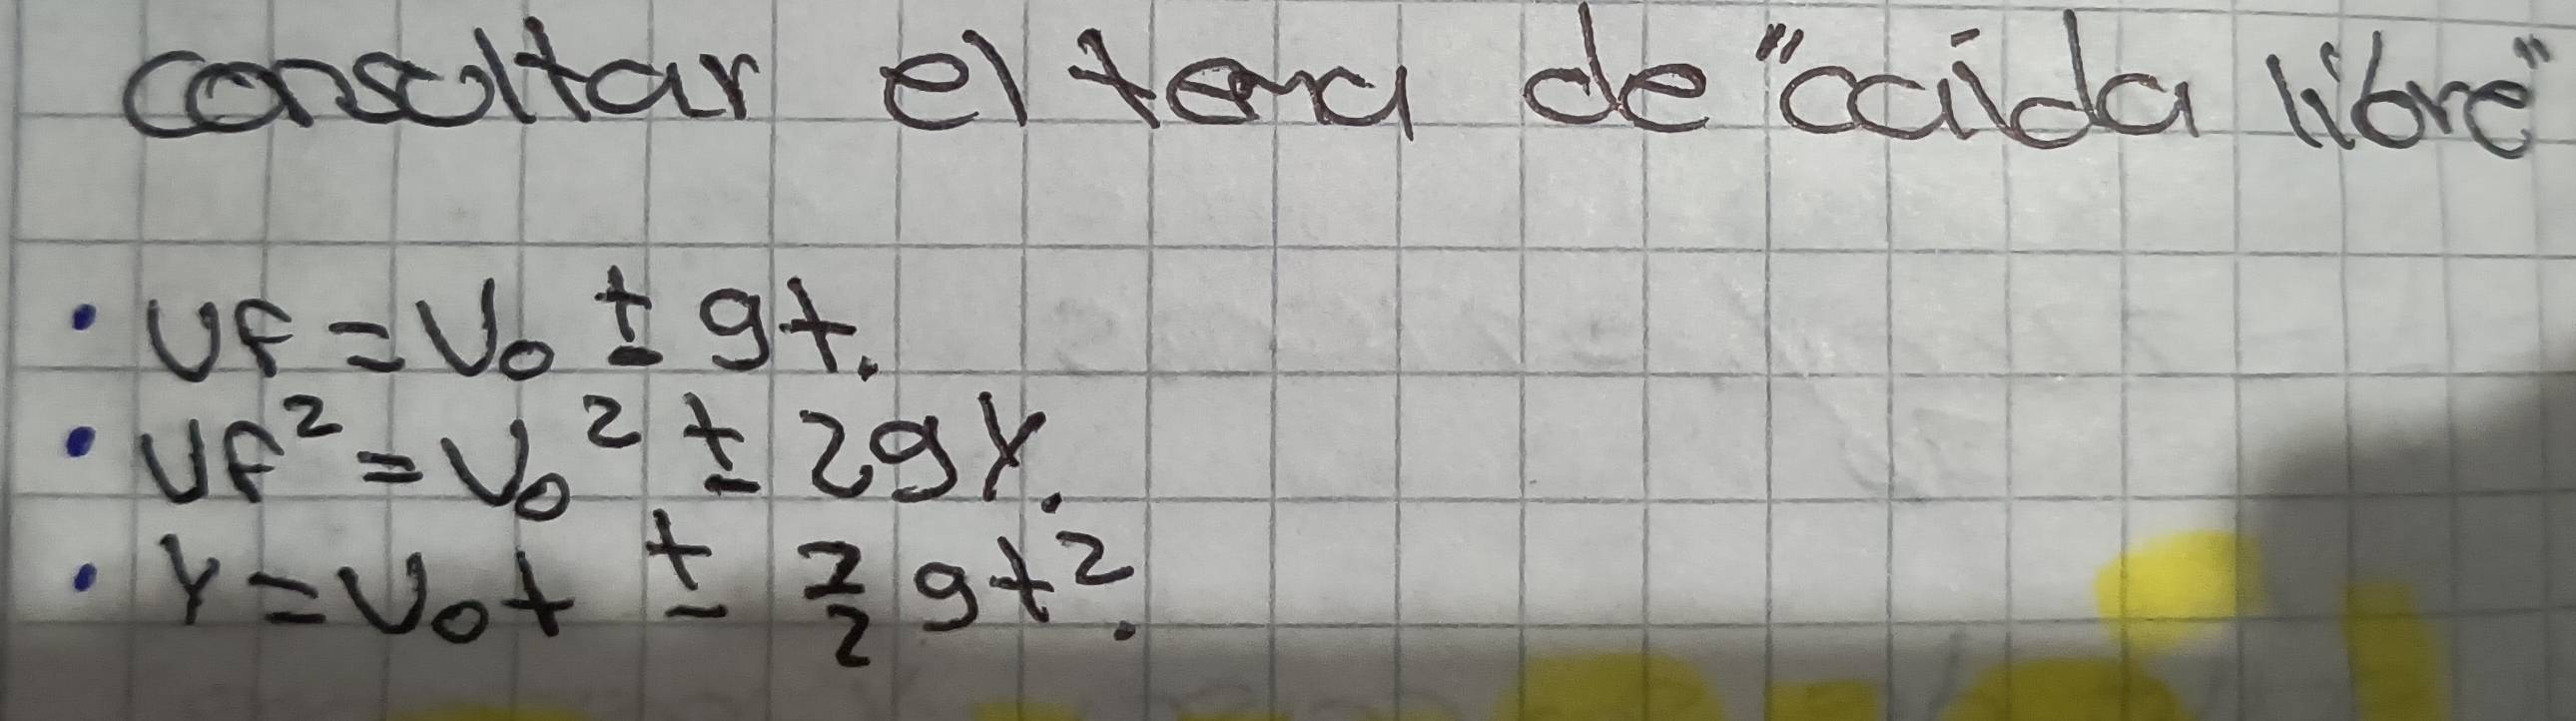 consultar el tema de "caída libre"
• vf = Vo ± gt.
• vf² = Vo² ± 2gy.
• y = Vot ± 1/2 gt².